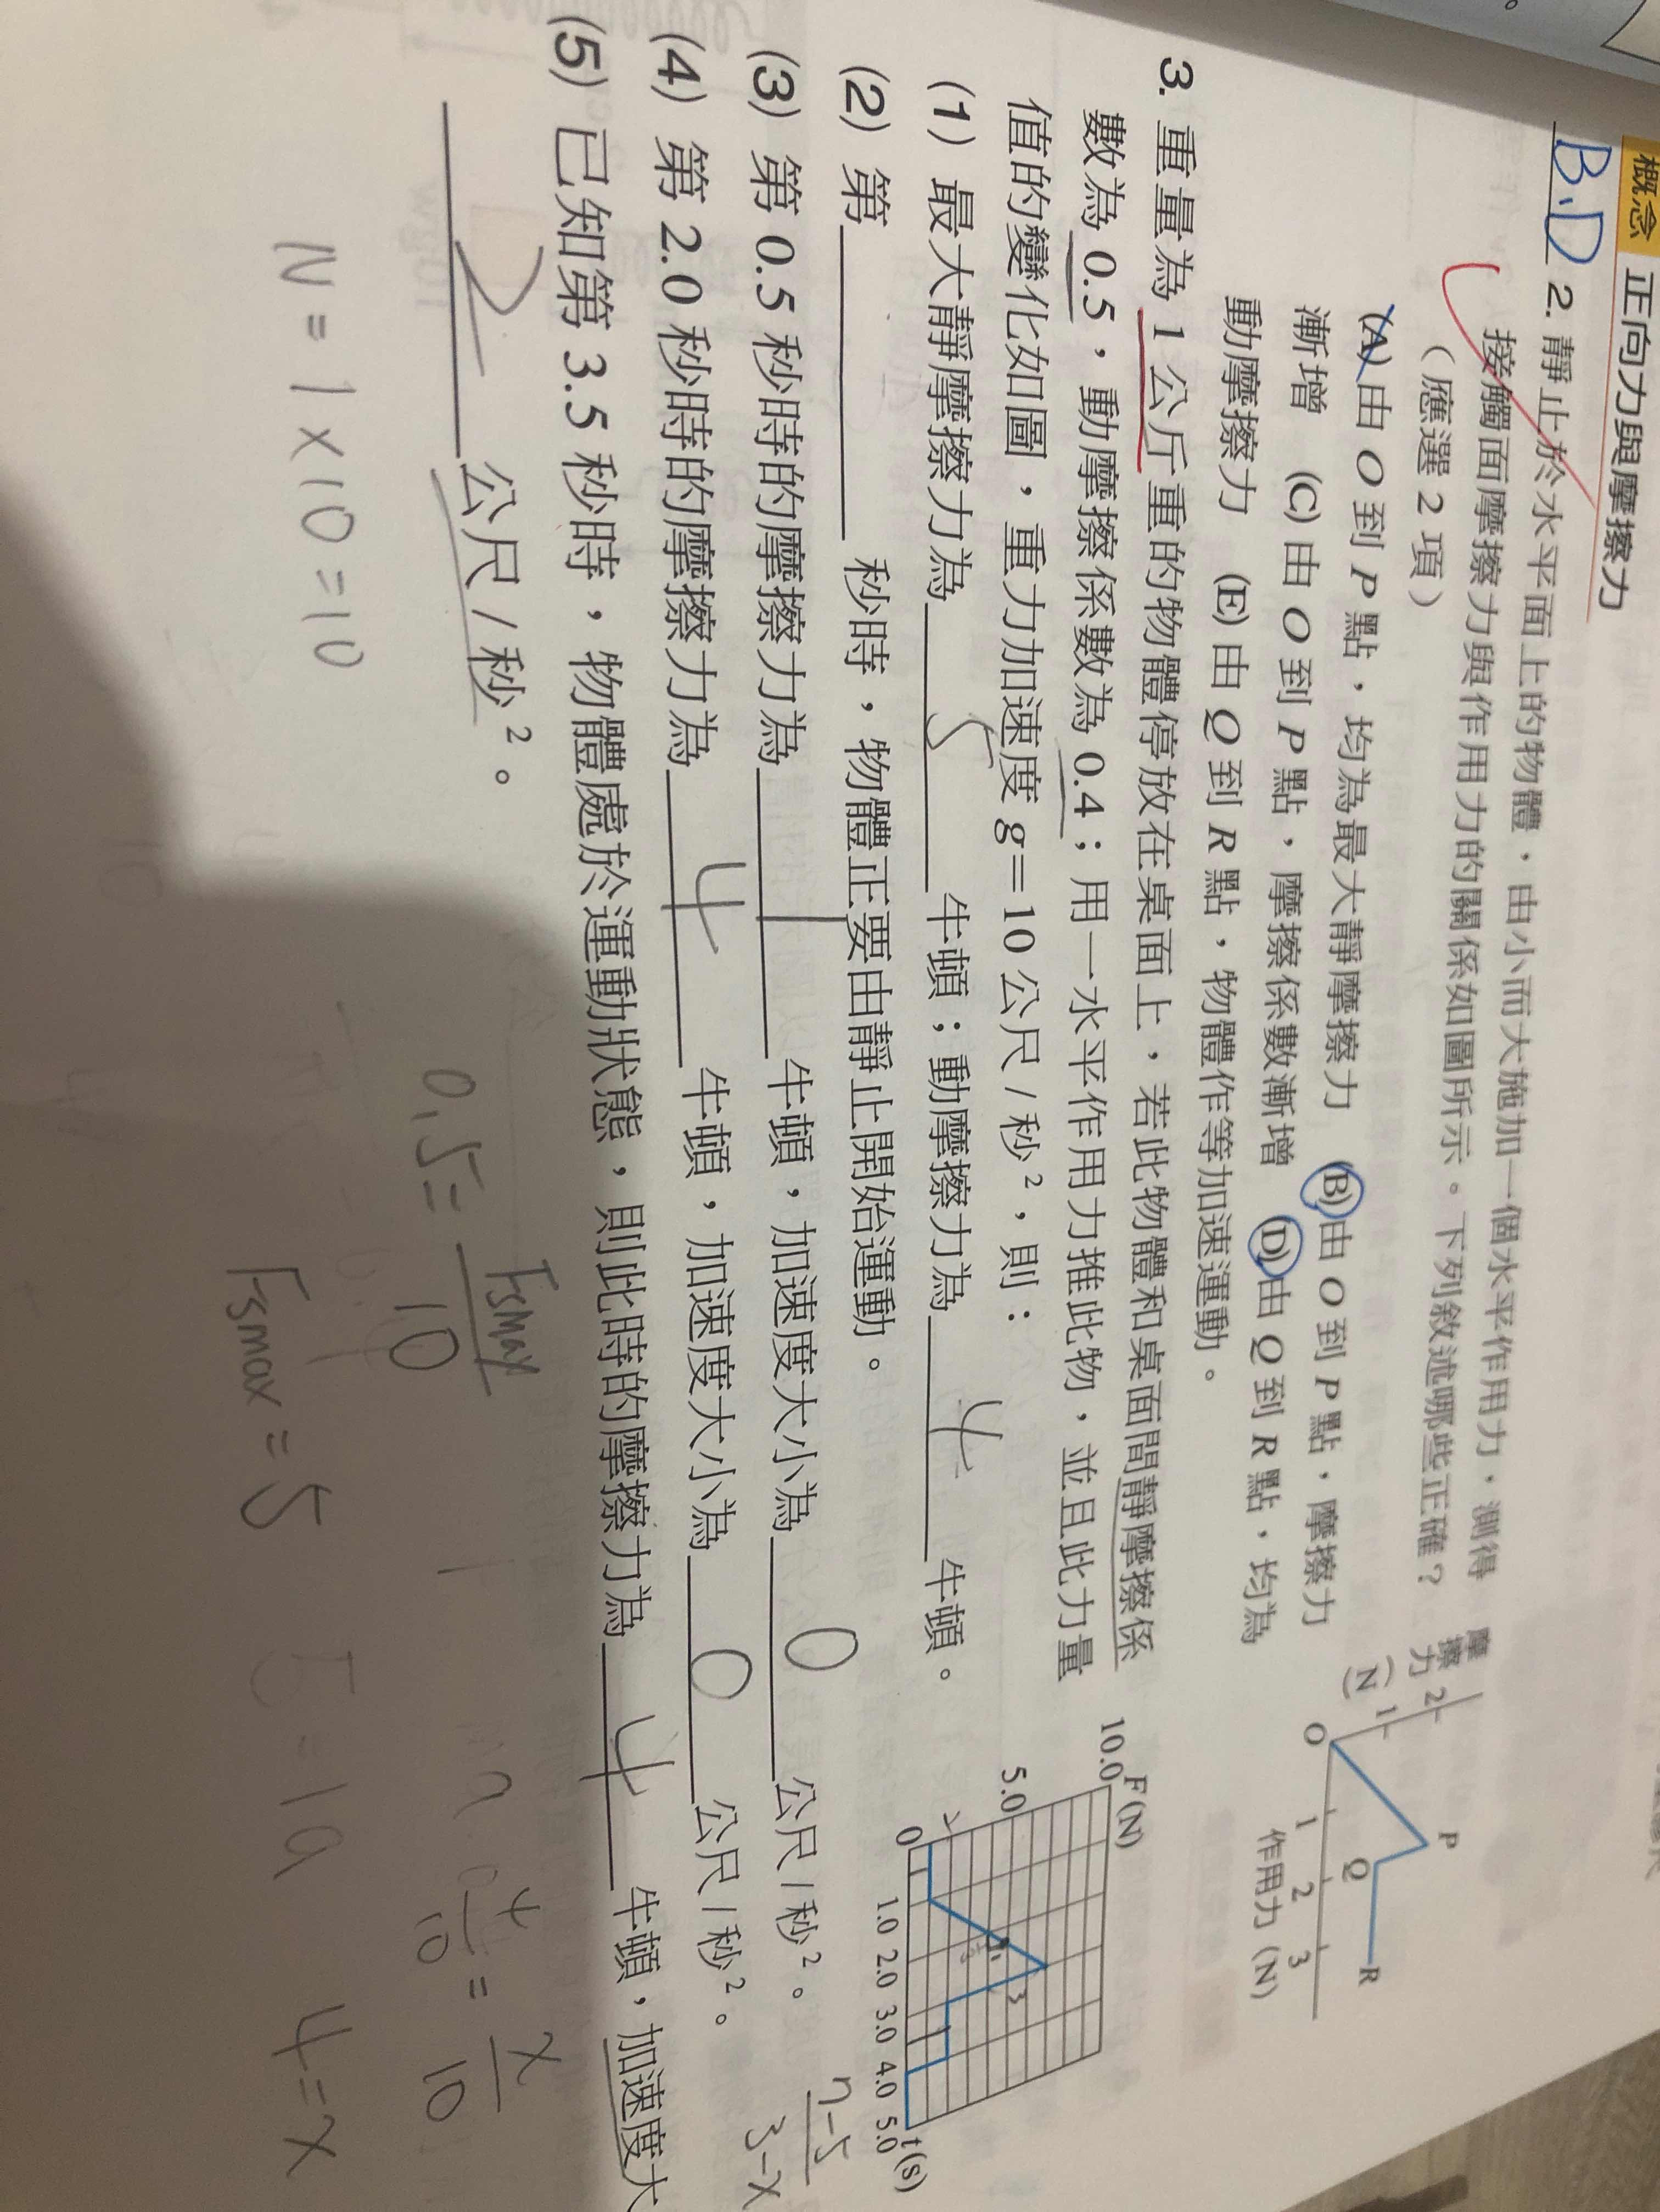 概念 正向力與摩擦力
B.D 2. 靜止於水平面上的物體，由小而大施加一個水平作用力，測得
接觸面摩擦力與作用力的關係如圖所示。下列敘述哪些正確？
（應選 2 項）
(A) 由 O 到 P 點，均為最大靜摩擦力 (B) 由 O 到 P 點，摩擦力
漸增 (C) 由 O 到 P 點，摩擦係數漸增 (D) 由 Q 到 R 點，均為
動摩擦力 (E) 由 Q 到 R 點，物體作等加速運動。
摩擦力 (N)
2
1
O
P
Q
R
1 2 3
作用力 (N)
3. 重量為 1 公斤重的物體停放在桌面上，若此物體和桌面間靜摩擦係
數為 0.5，動摩擦係數為 0.4；用一水平作用力推此物，並且此力量
值的變化如圖，重力加速度 g＝10 公尺 / 秒²，則：
(1) 最大靜摩擦力為 5 牛頓；動摩擦力為 4 牛頓。
(2) 第 秒時，物體正要由靜止開始運動。
(3) 第 0.5 秒時的摩擦力為 1 牛頓，加速度大小為 0 公尺 / 秒²。
(4) 第 2.0 秒時的摩擦力為 4 牛頓，加速度大小為 0 公尺 / 秒²。
(5) 已知第 3.5 秒時，物體處於運動狀態，則此時的摩擦力為 4 牛頓，加速度大
2 公尺 / 秒²。
F (N)
10.0
5.0
0
1.0 2.0 3.0 4.0 5.0
t (s)
3
7-5
3-x
N = 1 x 10 = 10
0.5 = Fsmax
10
Fsmax = 5
4/10 = x/10
4 = x